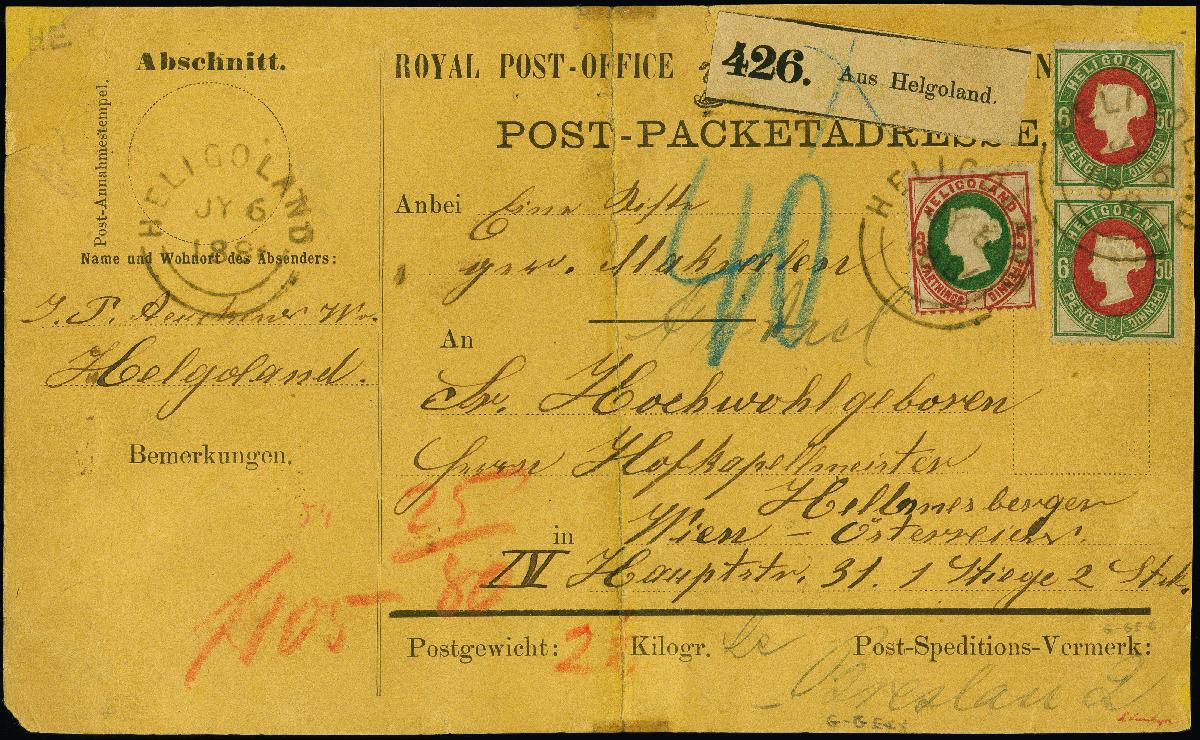 HE
Abschnitt.
Post-Annahmestempel.
HELIGOLAND
JY 6
188
Name und Wohnort des Absenders:
Helgoland.
Bemerkungen.
ROYAL POST-OFFICE
426. Aus Helgoland.
POST-PACKETADRESSE.
Anbei Eine Kiste
ger.
40
An
Sr. Hochwohlgeboren
Herrn Hofkapellmeister
Hellmesberger
in Wien - Österreich.
IV Hauptstr. 31. 1 Stiege 2 Stk.
Postgewicht: 2 Kilogr.
Post-Speditions-Vermerk:
Breslau 2
54
25
80
105
HELIGOLAND
3 FARTHINGS
PFENNIG
HELIGOLAND
6 50
PENCE PFENNIG
HELIGOLAND
6 50
PENCE PFENNIG
HELIGOLAND
HELIGOLAND